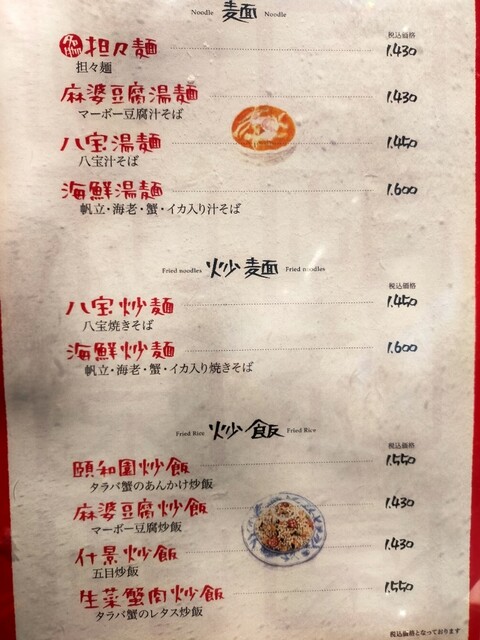 Noodle 麺 Noodle
税込価格
名物 担々麺 1.430
担々麺
麻婆豆腐湯麺 1.430
マーボー豆腐汁そば
八宝湯麺 1.450
八宝汁そば
海鮮湯麺 1.600
帆立・海老・蟹・イカ入り汁そば
Fried noodles 炒麺 Fried noodles
税込価格
八宝炒麺 1.450
八宝焼きそば
海鮮炒麺 1.600
帆立・海老・蟹・イカ入り焼きそば
Fried Rice 炒飯 Fried Rice
税込価格
頤和園炒飯 1.550
タラバ蟹のあんかけ炒飯
麻婆豆腐炒飯 1.430
マーボー豆腐炒飯
什景炒飯 1.430
五目炒飯
生菜蟹肉炒飯 1.550
タラバ蟹のレタス炒飯
税込価格となっております